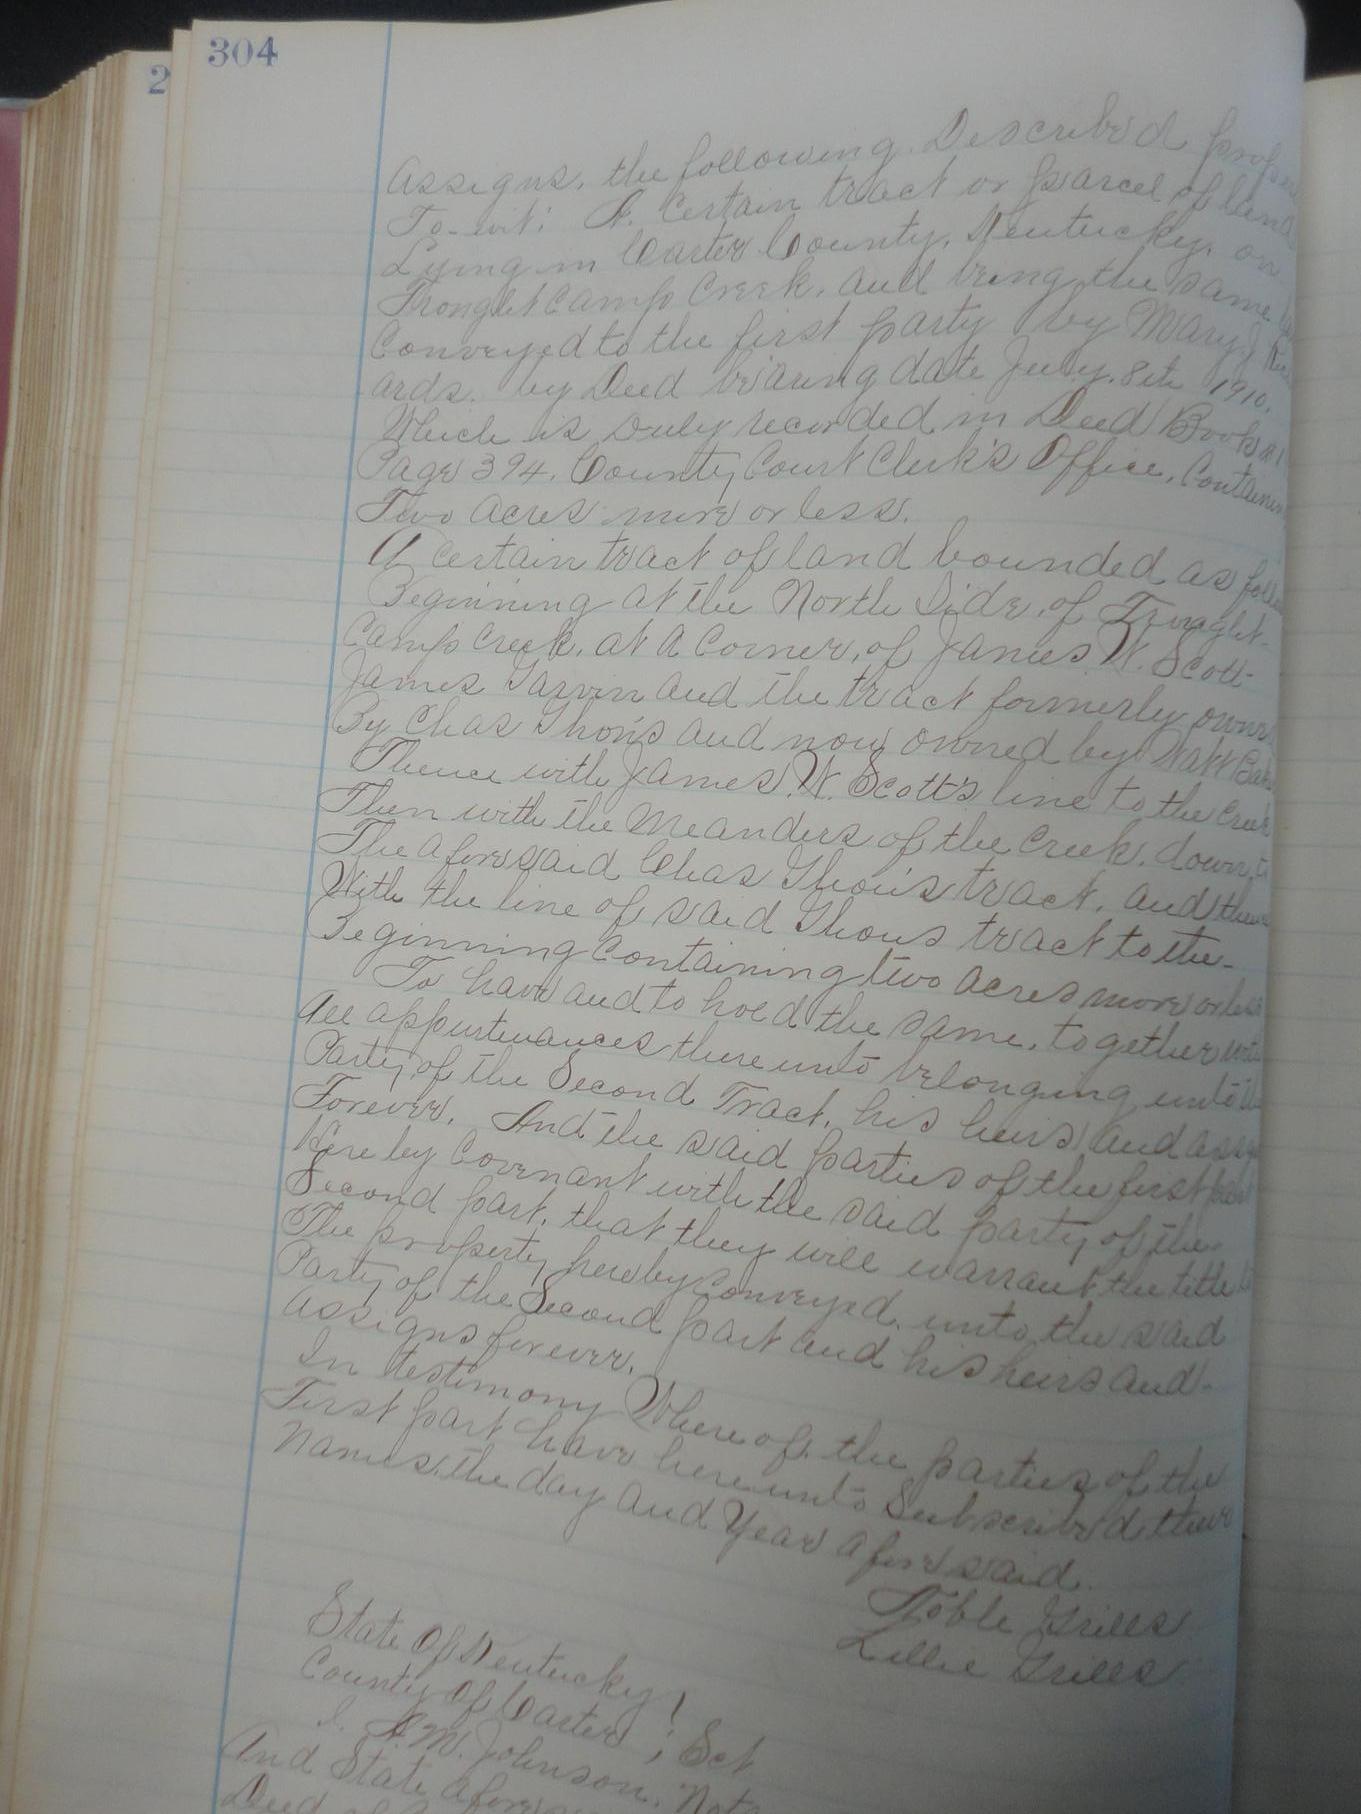 304
2
Assigns. the following Described
To-wit; A. Certain tract or parcel of land
Lying in Carter County, Kentucky, on
Camp Creek. and being the same
Conveyed to the first party by Mary J
ards. by Deed bearing date July. 8th 1910.
Which is Duly recorded in Deed Book
Page 394. County Court Clerk's Office.
Two acres more or less.
A Certain tract of land bounded as
Beginning at the North Side, of
Camp Creek, at a Corner, of James W. Scott-
James Garvin and the tract formerly
By Chas and now owned by Watt
Thence with James. W. Scott's line to the Creek
Then with the Meanders of the Creek. down,
The aforesaid Chas track. and
With the line of said tract to the-
Beginning Containing two acres more or less
To have and to hold the same. together with
All appurtenances there unto belonging unto
Party of the Second Tract. his heirs and
Forever. And the said parties of the first part
Here by Covenant with the said party of the-
Second part. that they will warrant the title
The property hereby Conveyed. unto the said
Party of the Second part and his heirs and-
Assigns forever.
In testimony Where of. the parties of the
First part have here unto Subscribed their
Names. the day and Year afore said.
Noble Grills
Lillie Grills
State Of Kentucky!
County Of Carter ; Sct
I. A. M. Johnson.
And State
Deed of